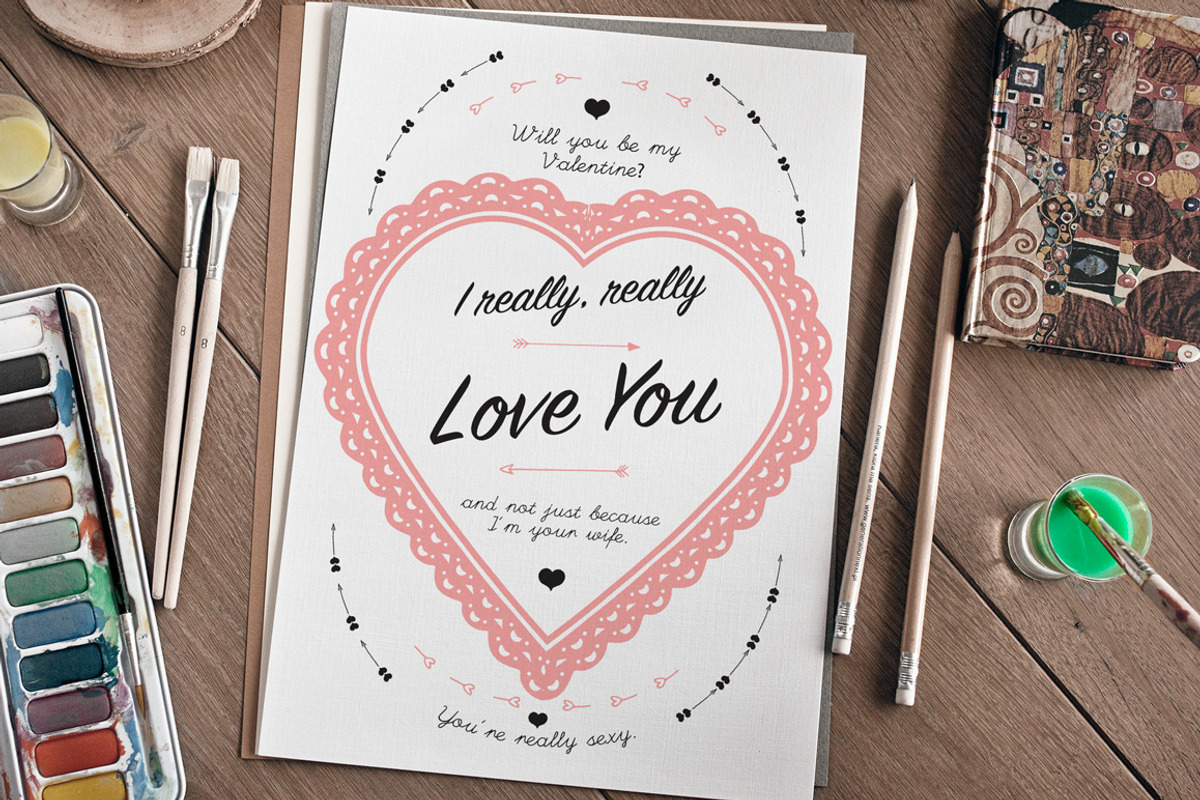 Will you be my
Valentine?
I really, really
Love You
and not just because
I'm your wife.
You're really sexy.
8
8